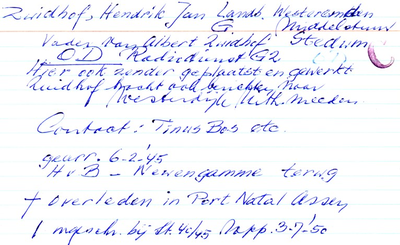 Zuidhof, Hendrik Jan Landb. Westeremden
G. Middelstum
Vader van Albert Zuidhof Stedum
O D Radiodienst G2
Hier ook zender geplaatst en gewerkt
Zuidhof bracht ook berichten naar
Westerdijk Uith. meeden
Contact: Tinus Bos etc.
gearr. 6-2-'45
HvB - Neuengamme terug
† overleden in Port Natal Assen
bij St. 40/45 Rapp. 3-7-'50